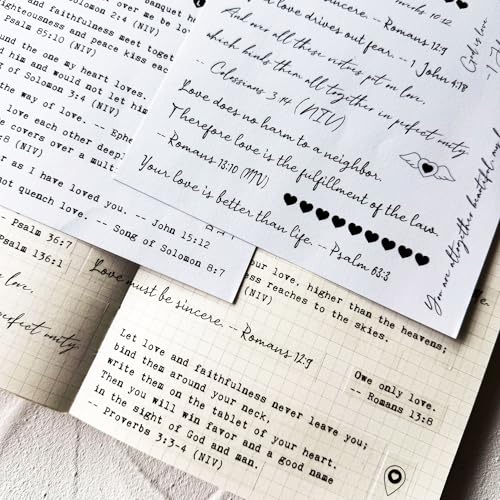 banquet h
over me be lo
2:4 (NIV)
faithfulness meet togeth
righteousness and peace kiss eac
Psalm 85:10 (NIV)
the one my heart loves.
him and would not let him
of Solomon 3:4 (NIV)
the way of love. -- Ephe
love each other deepl
covers over a mult
:8 (NIV)
as I have loved you. -- John 15:12
not quench love. -- Song of Solomon 8:7
10:12
sincere. -- Romans 12:9
love drives out fear. -- 1 John 4:18
And over all these virtues put on love,
which binds them all together in perfect unity.
-- Colossians 3:14 (NIV)
Love does no harm to a neighbor.
Therefore love is the fulfillment of the law.
-- Romans 13:10 (NIV)
Your love is better than life. -- Psalm 63:3
God is love
You are altogether beautiful, my
-- Psalm 36:7
Psalm 136:1
love,
perfect unity.
your love, higher than the heavens;
ss reaches to the skies.
(NIV)
Love must be sincere. -- Romans 12:9
Let love and faithfulness never leave you;
bind them around your neck,
write them on the tablet of your heart.
Then you will win favor and a good name
in the sight of God and man.
-- Proverbs 3:3-4 (NIV)
Owe only love.
-- Romans 13:8